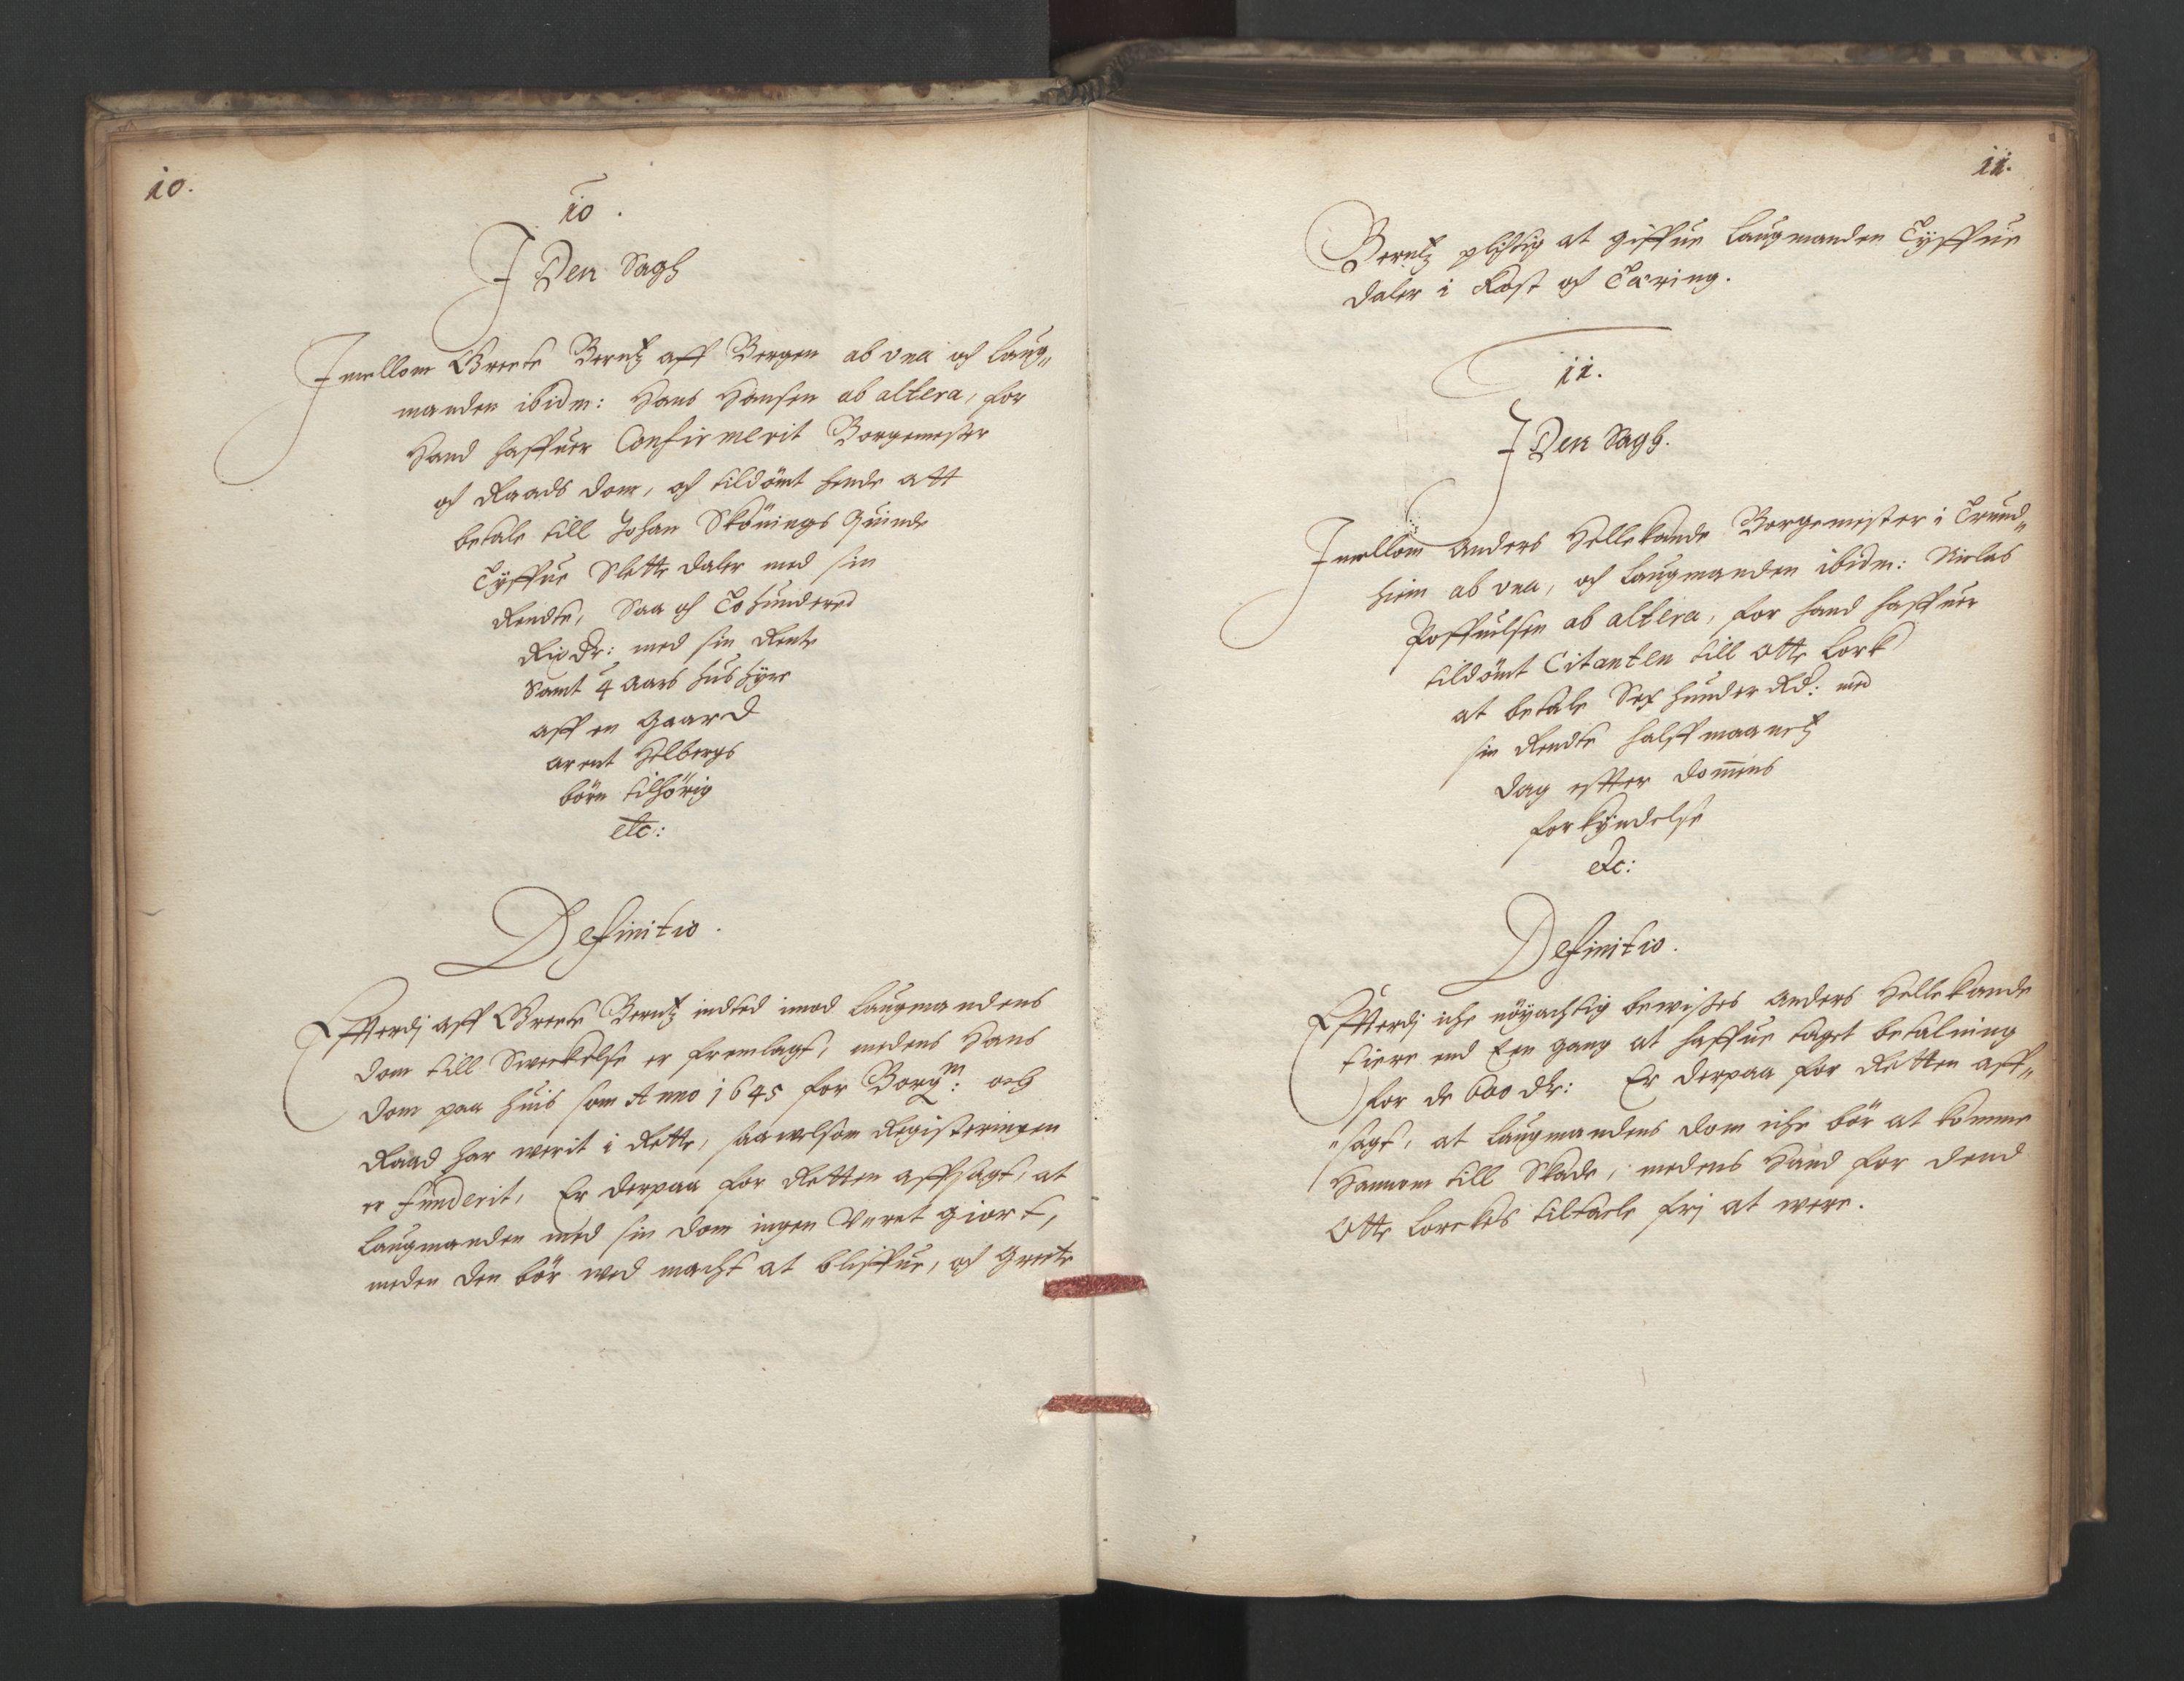 10.
10.
I Den Sagh
Imellom Grete Berntz aff Bergen ab una och Laug„
manden ibidm: Hans Hansen ab altera, for
Hand haffuer Confirmerit Borgemester
och Raads dom, och tildömt hende att
betale till Johan Skönings Quinde
Tyffue Slette daler med sin
Rendte, Saa och To hundered
Rixdr: med sin Rente
Samt 4 Aars huushyre
aff en Gaard
Arent Helbergs
börn tilhörig
etc:
Definitio.
Effterdj aff Grete Berntz indted imod Laugmandens
dom till Sweckelse er fremlagt, medens Hans
dom paa huis som Anno 1645 for Borgm: och
Raad har werit i Rette, saawelsom Registeringen
er funderit, Er derpaa for Retten affsagt, at
Laugmanden med sin dom ingen Uuret giort,
meden den bör ved macht at bliffue, och Grete
11.
Berntz plichtig at giffue Laugmanden Tyffue
daler i Kost och Tæring.
11.
I Den Sagh.
Imellom Anders Hellekande Borgemester i Trund„
hiem ab una, och Laugmanden ibidm: Niclas
Poffuelsen ab altera, for hand haffuer
tildömt Citanten till Otte Lork
at betale Sex hunder Rd: med
sin Rendte halffmaanetz
dag effter dommens
forkyndelse
etc:
Definitio.
Effterdj iche nöyachtig bewises Anders Hellekande
tiere end Een gang at haffue taget betalning
for de 600 dr: Er derpaa for Retten aff„
„sagt, at Laugmandens dom iche bör at komme
Hannem till Skade, medens Hand for dend
Otte Lorckes tiltaele frj at were.